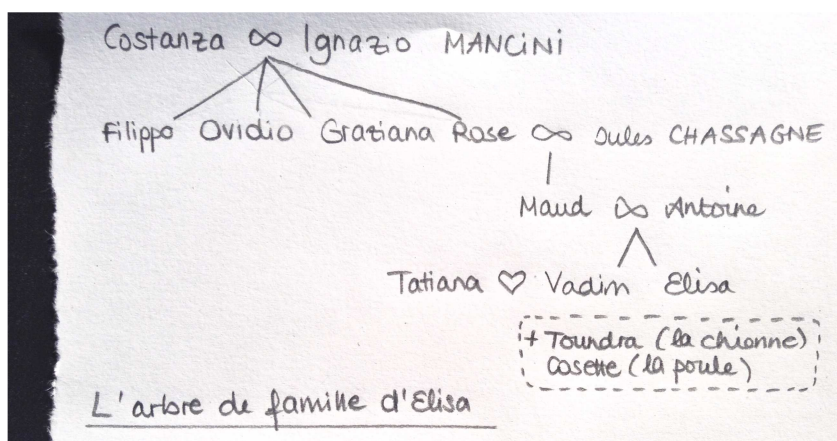 Costanza ∞ Ignazio MANCINI
Filippo Ovidio Graziana Rose ∞ Jules CHASSAGNE
Maud ∞ Antoine
Tatiana ♡ Vadim Elisa
+ Toundra (la chienne)
Cosette (la poule)
L'arbre de famille d'Elisa